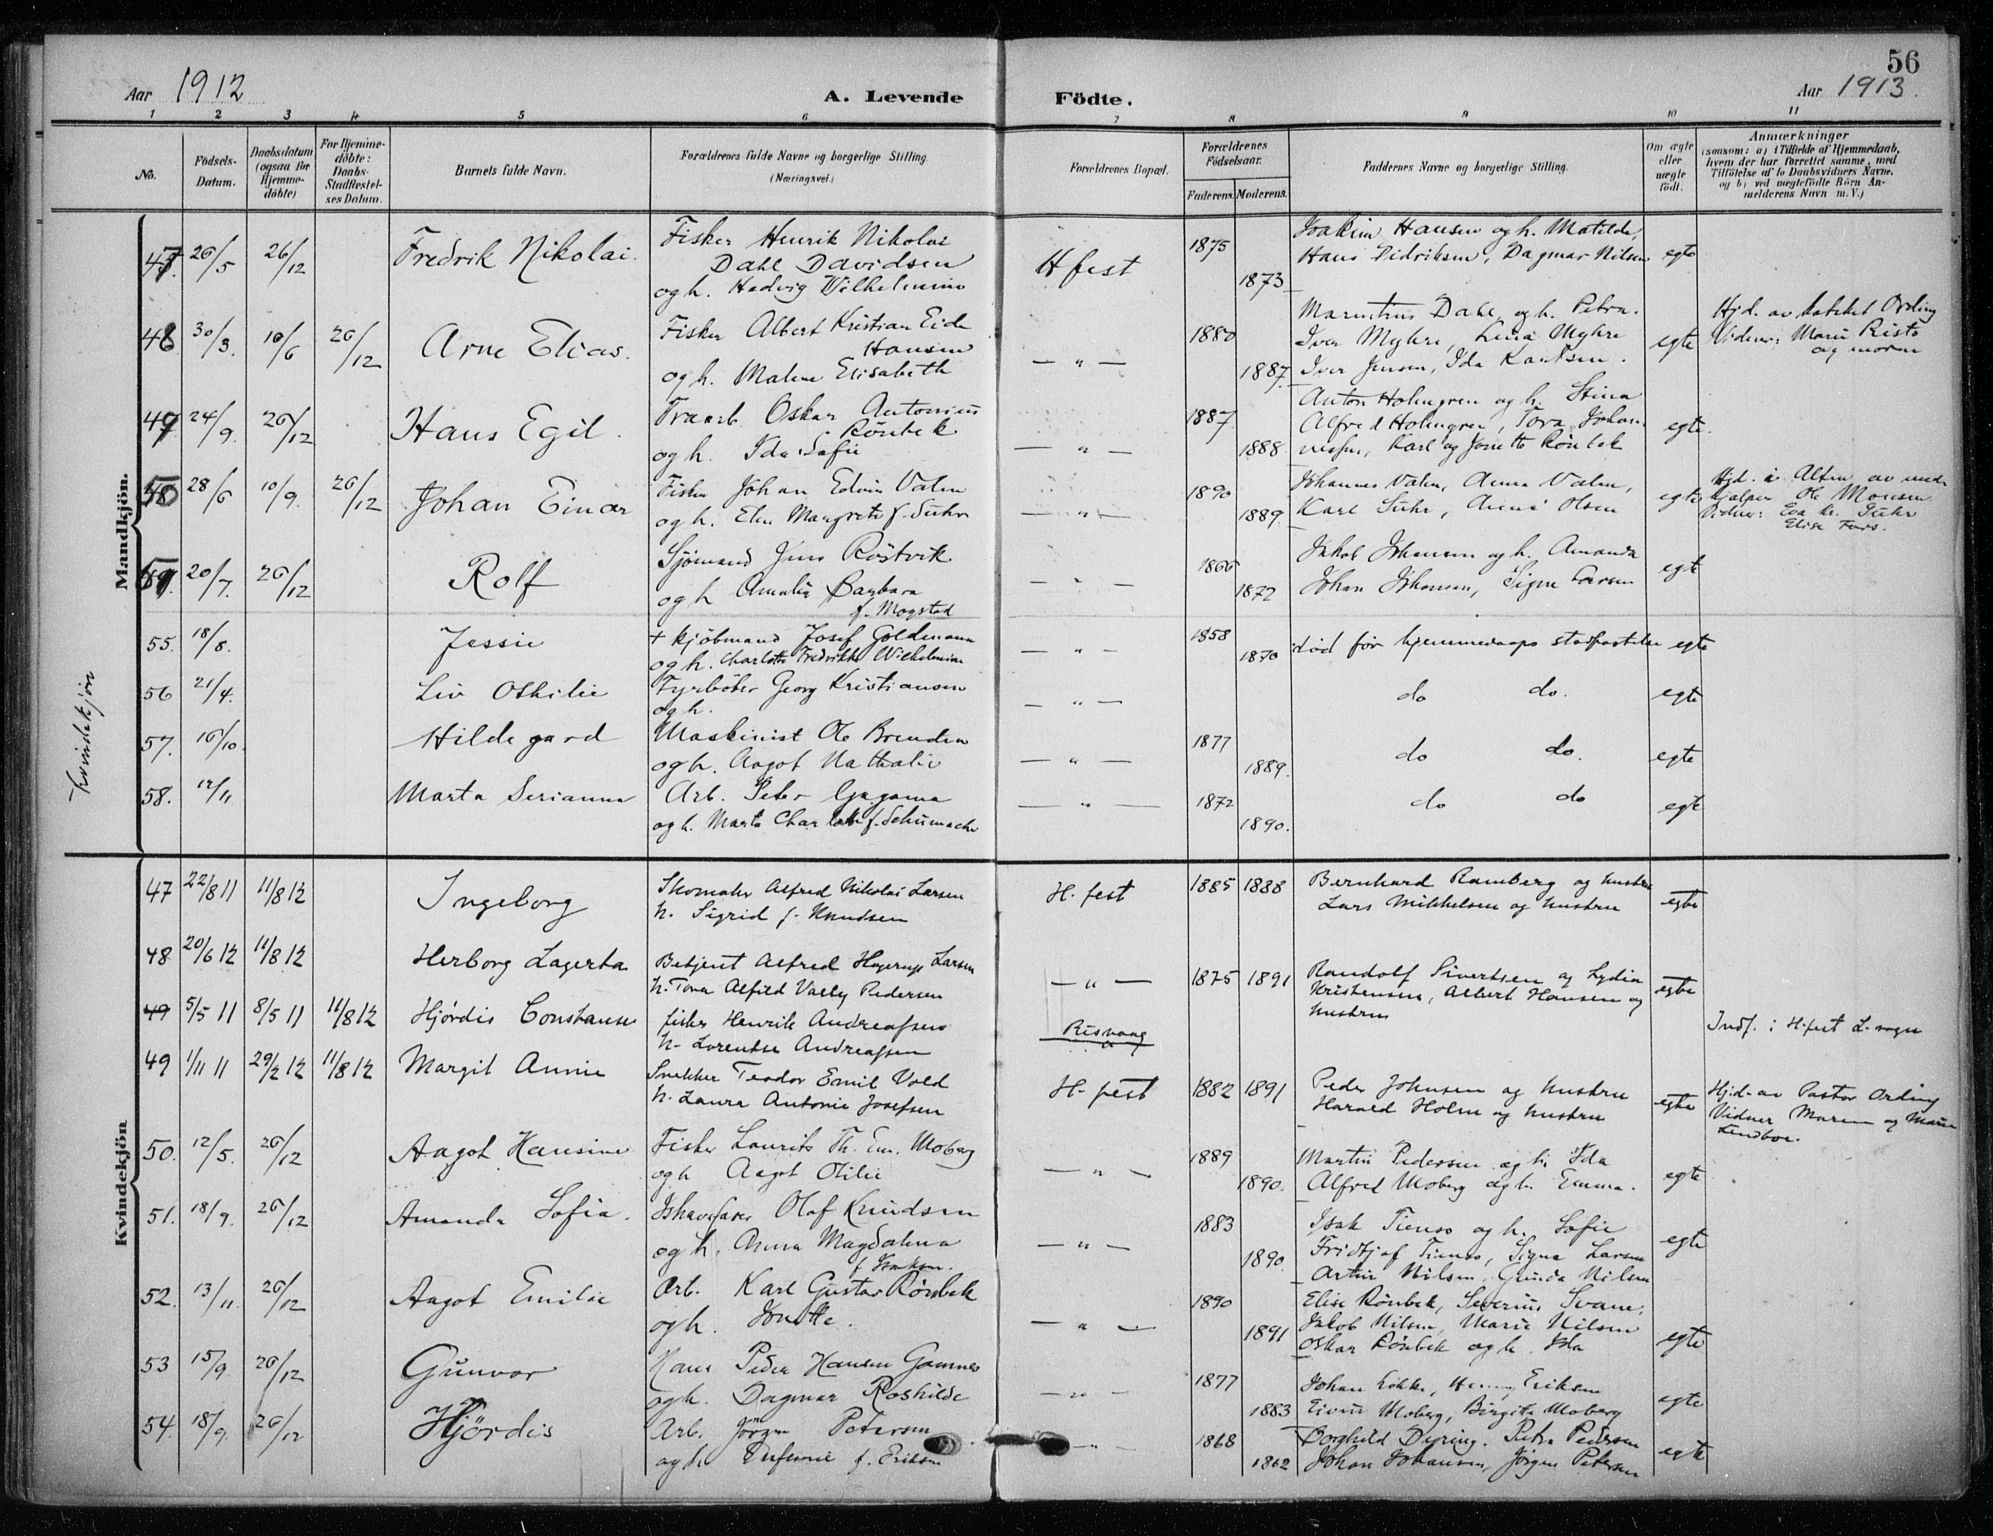 56
Aar 1912
A. Levende
Födte.
Aar 1913.
1 2 3 4 5 6 7 8 9 10 11
No.
Födsels-Datum.
Daabsdatum (ogsaa for Hjemmedöbte)
For Hjemmedöbte: Daabs-Stadfæstelses Datum.
Barnets fulde Navn.
Forældrenes fulde Navne og borgerlige Stilling. (Næringsvei.)
Forældrenes Bopæl.
Forældrenes Födselsaar.
Faderens. Moderens.
Faddernes Navne og borgerlige Stilling.
Om ægte eller uægte födt.
Anmærkninger
(saasom: a) i Tilfælde af Hjemmedaab, hvem der har forrettet samme, med Tilföielse af to Daabsvidners Navne. og b) ved uægtefödte Börn Anmelderens Navn m. V.)
Mandkjön.
47. 26/5 26/12 Fredrik Nikolai. Fisker Henrik Nikolai H fest 1875 Joakim Hansen og h. Matilde, egte
Dahl Davidsen Hans Didriksen, Dagmar Nilsen
og h. Hedvig Vilhelmine 1873
48 30/3 10/6 26/12 Arne Elias. Fisker Albert Kristian Eide — " — 1880 Dahl og h. Petra. egte Hjd. av Ording
Hansen Iver Myhre, Lina Myhre Vidner: Marie
og h. Malene Elisabeth 1887 Iver Jensen, Ida Karlsen. og moren
49 24/9. 26/12 Hans Egil. Oskar Antonius — " — 1887 Anton Holmgren og h. Stina egte.
Rönbek Alfred Holmgren, Tora
og h. Ida Sofie 1888 Karl og Jonette Rönbek
50 28/6 10/9. 26/12 Johan Einar Fisker Johan Edvin Valen — " — 1890 Johannes Valen, Anna Valen, egte Hjd. i Alten av
og h. Elen Margrete f. Suhr 1889. Karl Suhr, Anna Olsen Ole Monsen
Vidner: Eva Suhr
Elise
51. 20/7. 26/12 Rolf Sjömand Jens Röstvik — " — 1866 Jakob Johansen og h. Amanda egte
og h Amalie Barbara 1872 Johan Johansen, Signe Larsen
f. Mogstad
Kvindekjön
55. 18/8. Jessie + kjöbmand Josef Goldmann — " — 1858 död for hjemmedaaps stadfæstelse egte
og h. Charlotte Fredrikke Vilhelmine 1870
56 21/4. Liv Othilie Fyrböter Georg Kristiansen — " — do do. egte
og h.
57. 16/10. Hildegard Maskinist Ole Brenden — " — 1877 do do. egte
og h. Aagot Nathalie 1889.
58. 12/11 Marta Serianna Arb. Peter — " — 1872 do do egte
og h. Marta f. Schumacher 1890.
Kvindekjön
47 22/8 11 11/8 12 Ingeborg Skomaker Alfred Nikolai Larsen H. fest 1885 1888 Bernhard Ramberg og hustru egte
h. Sigrid f. Knudsen Lars Mikkelsen og hustru
48 20/6 12 11/8 12 Herborg Lagerta Betjent Alfred Hagerup Larsen — " — 1875 1891 Randolf Sivertsen og Lydia egte
h. Tora Alfild Vally Pedersen Kristensen, Albert Hansen og
hustru
49 5/5 11 8/5 11 11/8 12 Hjördis Constanse fisker Henrik Andreassen Risvaag Indf. i H-fest L-sogn
h. Lorentse Andreassen
49 1/11 11 29/2 12 11/8 12 Margit Annie Snekker Teodor Emil Vold H. fest 1882 1891 Peder Johnsen og hustru egte Hjd. av Pastor Ording
h. Laura Antonie Josefsen Harald Holm og hustru Vidner Maren og Marie
Lindboe.
50. 12/5. 26/12 Aagot Hansine Fisker Laurits Th. Em. Moberg — " — 1889 Martin Pedersen og h. Ida egte
og h Aagot Otilie 1890. Alfred Moberg og h. Emma.
51. 18/9. 26/12 Amanda Sofia. Ishavsfarer Olaf Knudsen — " — 1883 Isak Tienso og h. Sofie egte
og h. Anna Magdalena 1890 Fridtjof Tienso, Signe Larsen
Artur Nilsen, Nilsen
52. 13/11. 26/12 Aagot Emilie Arb. Karl Gustav Rönbek — " — 1890 Elise Rönbek, Severin Svane, egte
og h. Jonette. 1891 Jakob Nilsen, Marie Nilsen
Oskar Rönbek og h. Ida
53 15/9. 26/12 Gunvor Peder Hansen — " — 1877 Johan Lökke, Henny Eriksen egte
og h. Dagmar Roshilde 1883 Moberg, Birgitte Moberg
54. 18/9. 26/12 Hjördis Arb. Jörgen Petersen — " — 1868 Borghild Dyring. Petra Pedersen egte
og h. f. Eriksen 1862 Johan Johansen, Jörgen Petersen